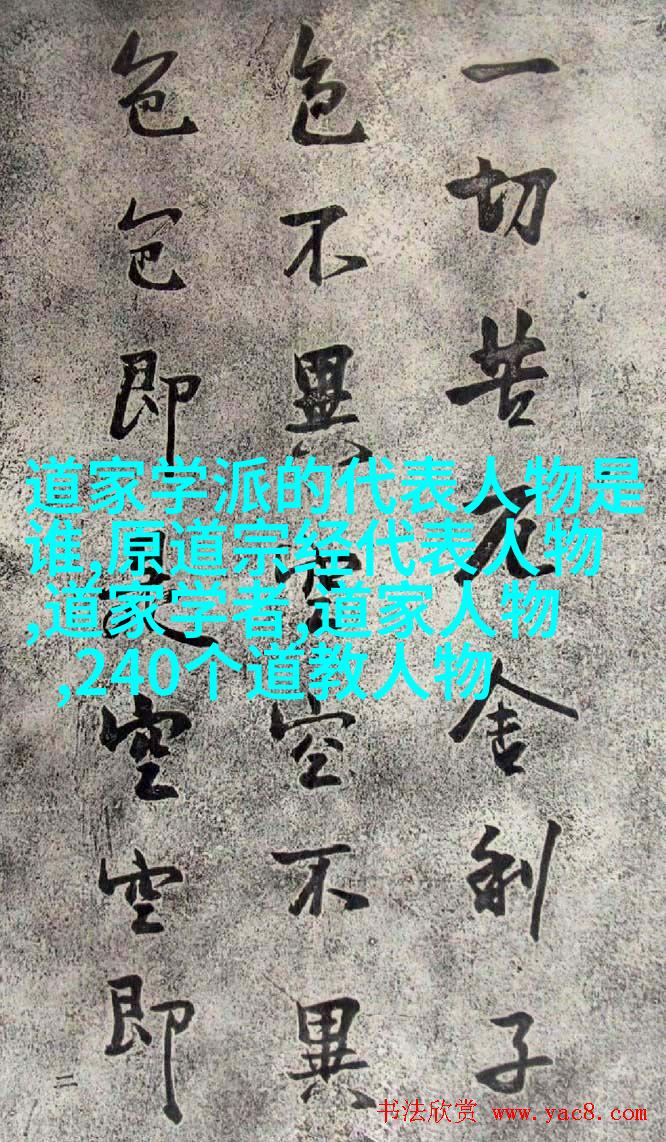 一切苦厄舍利子
色不異空空不異
色色即是空空即
二
道家学派的代表人物是
谁,原道宗经代表人物
,道家学者,道家人物
,240个道教人物
书法欣赏 www.yac8.com